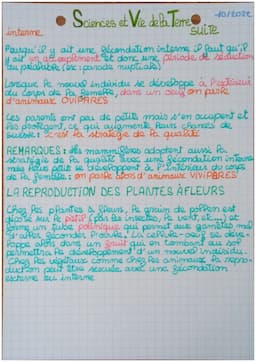 -10/2022
Sciences et Vie de la Terre
suite
interne
Pour qu'il y ait une fécondation interne il faut qu'il
y ait un accouplement et donc une période de séduction
au préalable (ex: parade nuptiale)
Lorsque le nouvel individu se développe à l'extérieur
du corps de la femelle, dans un oeuf on parle
d'animaux OVIPARES
Les parents ont peu de petits mais s'en occupent et
les protègent, ce qui augmente leurs chances de
survie: c'est la stratégie de la qualité
REMARQUES: les mammifères adoptent aussi la
stratégie de la qualité avec une fécondation interne
mais leurs petits se développent à l'intérieur du corps
de la femelle: on parle alors d'animaux VIVIPARES
LA REPRODUCTION DES PLANTES À FLEURS
Chez les plantes à fleurs, le grain de pollen est
sur le pistil (par les insectes, le vent, et...) et
forme un tube pollinique qui permet aux gamètes mâles
d'aller féconder l'ovule. La cellule-oeuf se déve-
loppe alors dans un fruit qui en tombant au sol
permettra le développement d'un nouvel individu.
Chez les végétaux comme chez les animaux la repro-
duction peut être sexuée avec une fécondation
externe ou interne